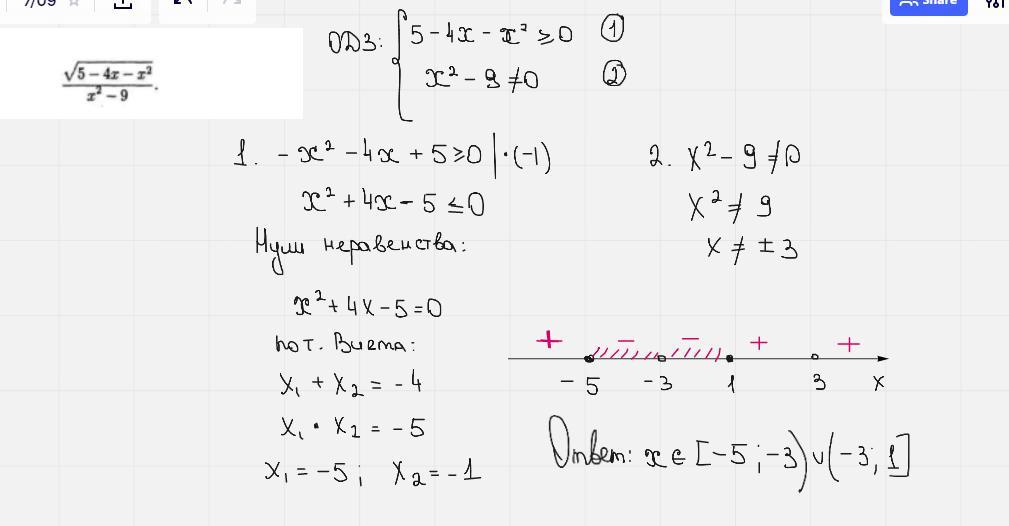 7/09
Share
√5 − 4x − x²
x² − 9 .
ОДЗ: { 5 - 4x - x² ≥ 0 ①
x² - 9 ≠ 0 ②
1. - x² - 4x + 5 ≥ 0 | · (-1)
x² + 4x - 5 ≤ 0
Нули неравенства:
x² + 4x - 5 = 0
по т. Виета:
x₁ + x₂ = - 4
x₁ · x₂ = - 5
x₁ = - 5 ; x₂ = - 1
2. x² - 9 ≠ 0
x² ≠ 9
x ≠ ± 3
+ − − + +
- 5 - 3 1 3 x
Ответ: x ∈ [-5 ; -3) ∪ (-3 ; 1]